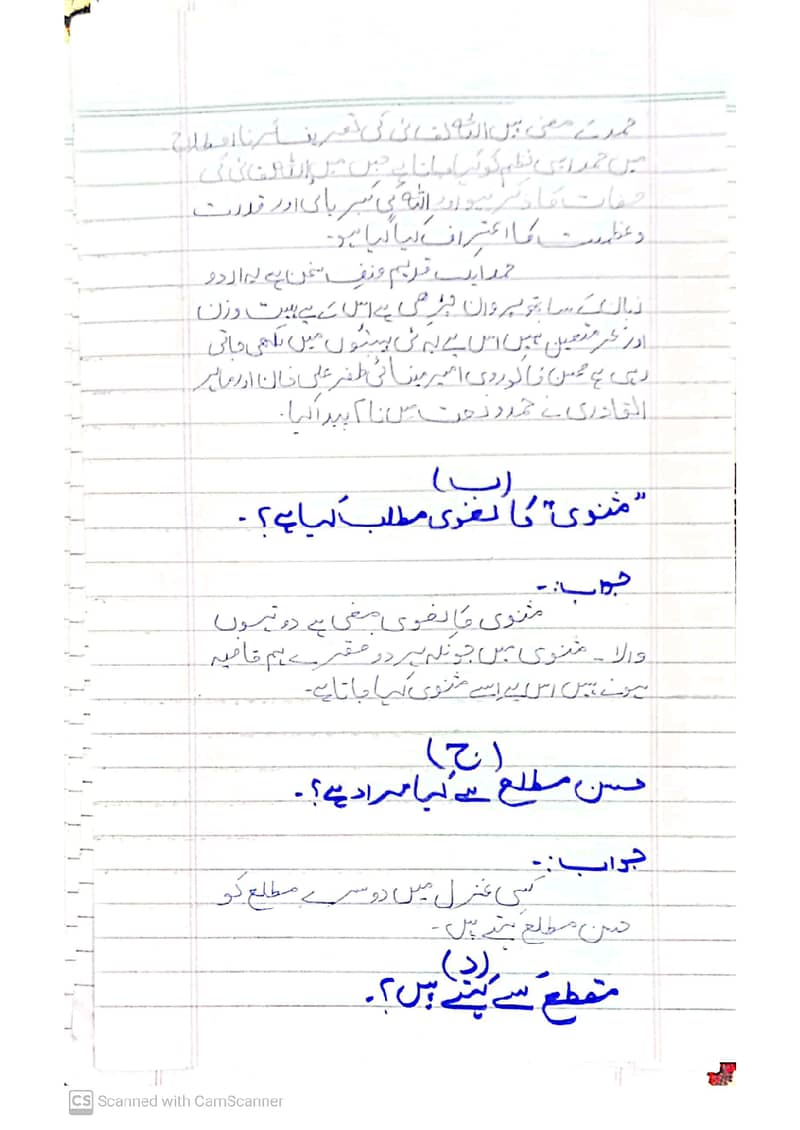 حمد کے معنی ہیں اللہ تعالیٰ کی تعریف کرنا اصطلاح
میں حمد ایسی نظم کو کہا جاتا ہے جس میں اللہ تعالیٰ کی
صفات کا ذکر ہو اور اللہ کی کبریائی اور قدرت
و عظمت کا اعتراف کیا گیا ہو۔
حمد ایک قدیم صنفِ سخن ہے یہ اردو
زبان کے ساتھ پروان چڑھی ہے اس کے لیے ہیت وزن
اور بحر متعین نہیں اس لیے یہ کئی ہیئتوں میں لکھی جاتی
رہی ہے محسن کاکوروی امیر مینائی ظفر علی خان اور ماہر
القادری نے حمد و نعت میں نام پیدا کیا۔
(ب)
"مثنوی" کا لغوی مطلب کیا ہے؟۔
جواب:۔
مثنوی کا لغوی معنی ہے دو
والا۔ مثنوی میں چونکہ ہر دو مصرے ہم قافیہ
ہوتے ہیں اس لیے اسے مثنوی کہا جاتا ہے۔
(ج)
حسن مطلع سے کیا مراد ہے؟۔
جواب:۔
کسی غزل میں دوسرے مطلع کو
حسن مطلع کہتے ہیں۔
(د)
مقطع سے کہتے ہیں؟۔
CS Scanned with CamScanner